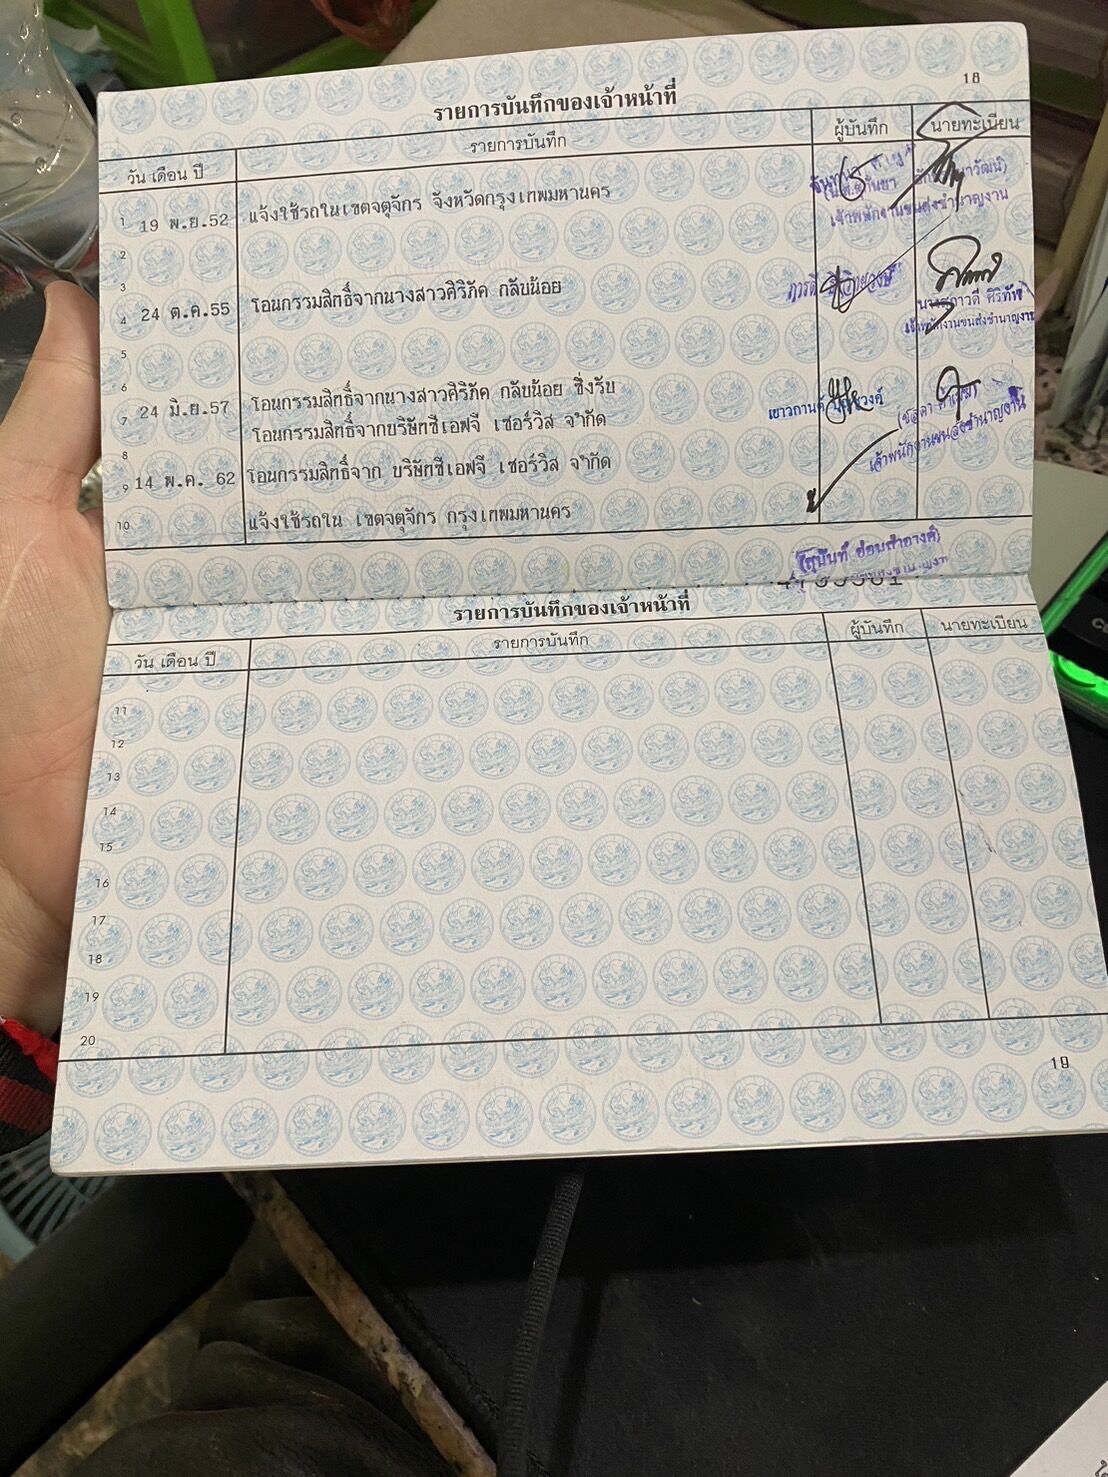 18
รายการบันทึกของเจ้าหน้าที่
วัน เดือน ปี รายการบันทึก ผู้บันทึก นายทะเบียน
1 19 พ.ย.52 แจ้งใช้รถในเขตจตุจักร จังหวัดกรุงเทพมหานคร
เจ้าพนักงานขนส่งชำนาญงาน
2
3
4 24 ต.ค.55 โอนกรรมสิทธิ์จากนางสาวศิริภัค กลับน้อย
เจ้าพนักงานขนส่งชำนาญงาน
5
6
7 24 มิ.ย.57 โอนกรรมสิทธิ์จากนางสาวศิริภัค กลับน้อย ซึ่งรับ
โอนกรรมสิทธิ์จากบริษัทซีเอฟจี เซอร์วิส จำกัด
เจ้าพนักงานขนส่งชำนาญงาน
8
9 14 พ.ค. 62 โอนกรรมสิทธิ์จาก บริษัทซีเอฟจี เซอร์วิส จำกัด
10 แจ้งใช้รถใน เขตจตุจักร กรุงเทพมหานคร
รายการบันทึกของเจ้าหน้าที่
วัน เดือน ปี รายการบันทึก ผู้บันทึก นายทะเบียน
11
12
13
14
15
16
17
18
19
20
19